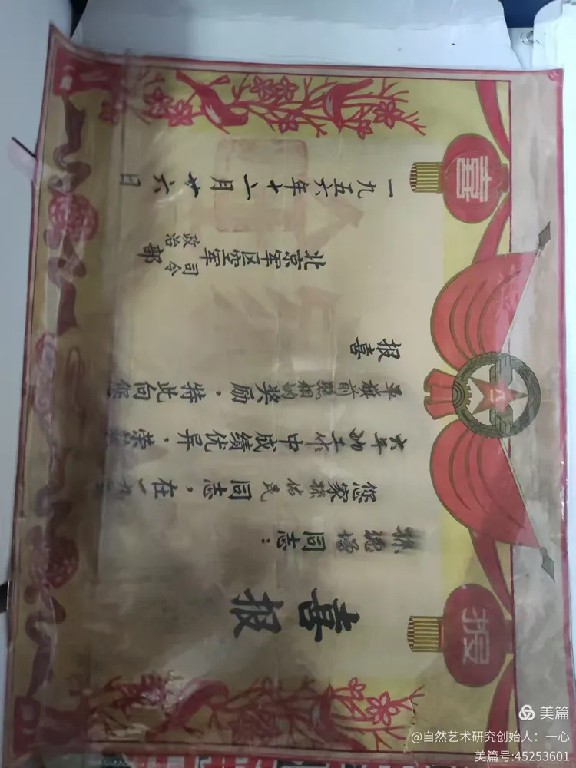 喜报
喜报
同志：
您家孫佑民同志，在一九
六年的工作中成绩优异，荣
军旗前照相的奖励，特此向您
报喜
北京军区空军司令政治部
一九五六年十二月廿六日
美篇
@自然艺术研究创始人：一心
美篇号:45253601